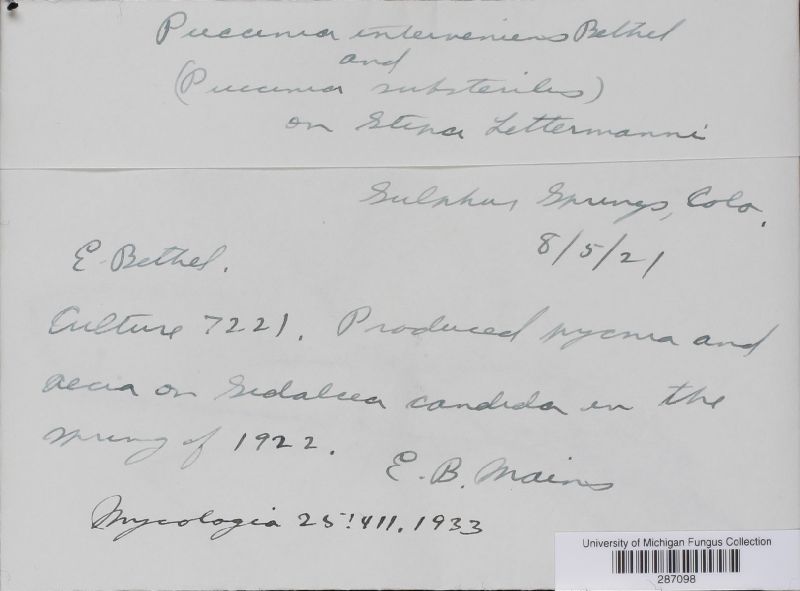 Puccinia interveniens Bethel
and
(Puccinia substerilis)
on Stipa Lettermanni
Sulphur Springs, Colo.
8/5/21
E. Bethel.
Culture 7221. Produced pycnia and
aecia on Sidalcea candida in the
spring of 1922.
E. B. Mains
Mycologia 25:411. 1933
University of Michigan Fungus Collection
287098